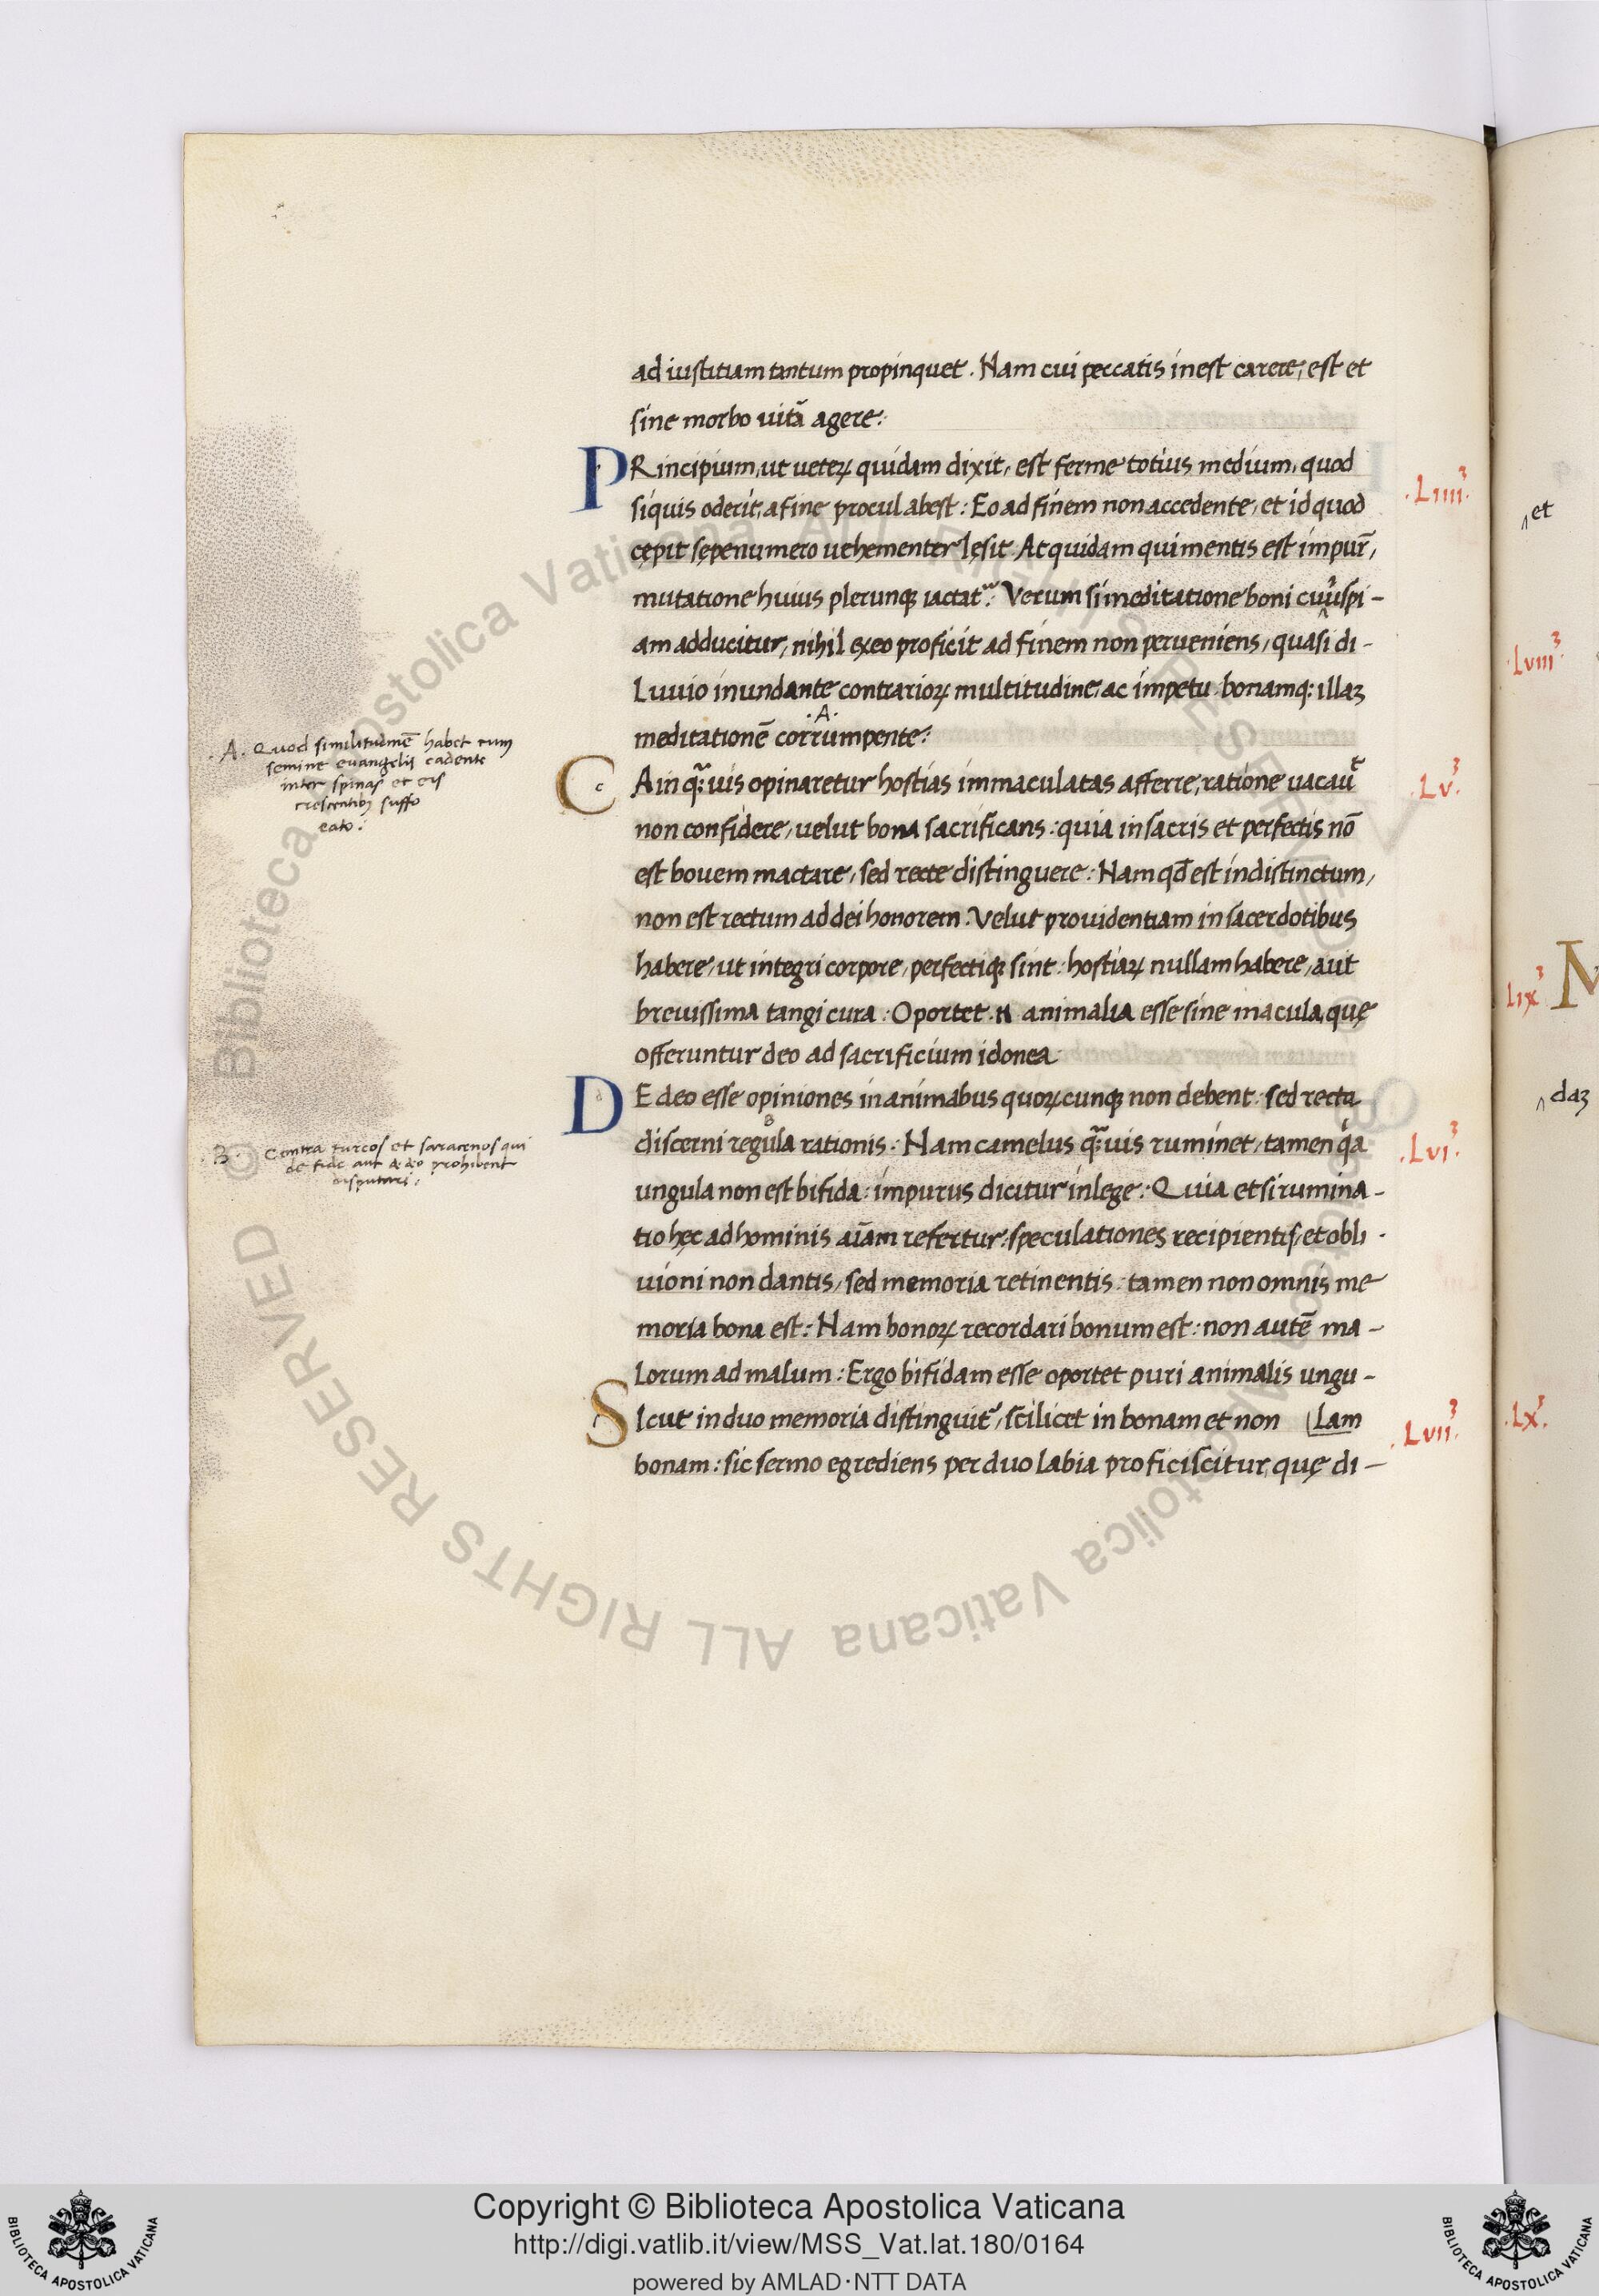 ad iustitiam tantum propinquet. Nam cui peccatis inest carere, est et
sine morbo uitā agere:
PRincipium, ut ueteꝝ quidam dixit, est ferme totius medium, quod
.Liiii³.
siquis oderit, a fine procul abest: Eo ad finem non accedente, et id quod
cępit sępenumero uehementer lęsit. At quidam qui mentis est impur̄,
mutatione huius plerunqꝫ iactat͛. Verum si meditatione boni cuiuspi-
am adducitur, nihil ex eo proficit ad finem non perueniens, quasi di-
Luuio inundante contrarioꝝ multitudine, ac impetu bonamqꝫ illaꝫ
.A.
meditationē corrumpente:
.A. Quod similitudinē habet cum
semine euangelij cadente
inter spinas et eis
crescentibꝫ suffo
cato:
c
CAin qͣuis opinaretur hostias immaculatas afferre, ratione uacauͭ
.Lv³.
non confidere, uelut bona sacrificans: quia in sacris et perfectis nō
est bouem mactare, sed recte distinguere: Nam qđ est indistinctum,
non est rectum ad dei honorem. Velut prouidentiam in sacerdotibus
habere, ut integri corpore, perfectiqꝫ sint: hostiaꝝ nullam habere, aut
breuissima tangi cura: Oportet .N. animalia esse sine macula, quę
offeruntur deo ad sacrificium idonea.
DE deo esse opiniones in animabus quoꝝcunqꝫ non debent: sed recta
B
discerni regula rationis: Nam camelus qͣuis ruminet, tamen qͥa
.Lvi³.
.B. Contra turcos et saracenos qui
de fide aut de deo prohibent
disputari:
ungula non est bifida: impurus dicitur in lege: Quia etsi rumina-
tio hęc ad hominis aīam refertur, speculationes recipientis, et obli-
uioni non dantis, sed memoria retinentis: tamen non omnis me
moria bona est: Nam bonoꝝ recordari bonum est: non autē ma-
Lorum ad malum: Ergo bifidam esse oportet puri animalis ungu-
SIcut in duo memoria distinguit͛, scilicet in bonam et non (Lam
.Lvii³.
bonam: sic sermo egrediens per duo labia proficiscitur, quę di-
et
.Lviii³
Lix³ M
daꝫ
.Lx³.
© Biblioteca Apostolica Vaticana ALL RIGHTS RESERVED © Biblioteca Apostolica Vaticana ALL RIGHTS RESERVED
Copyright © Biblioteca Apostolica Vaticana
http://digi.vatlib.it/view/MSS_Vat.lat.180/0164
powered by AMLAD·NTT DATA
BIBLIOTECA APOSTOLICA VATICANA
BIBLIOTECA APOSTOLICA VATICANA